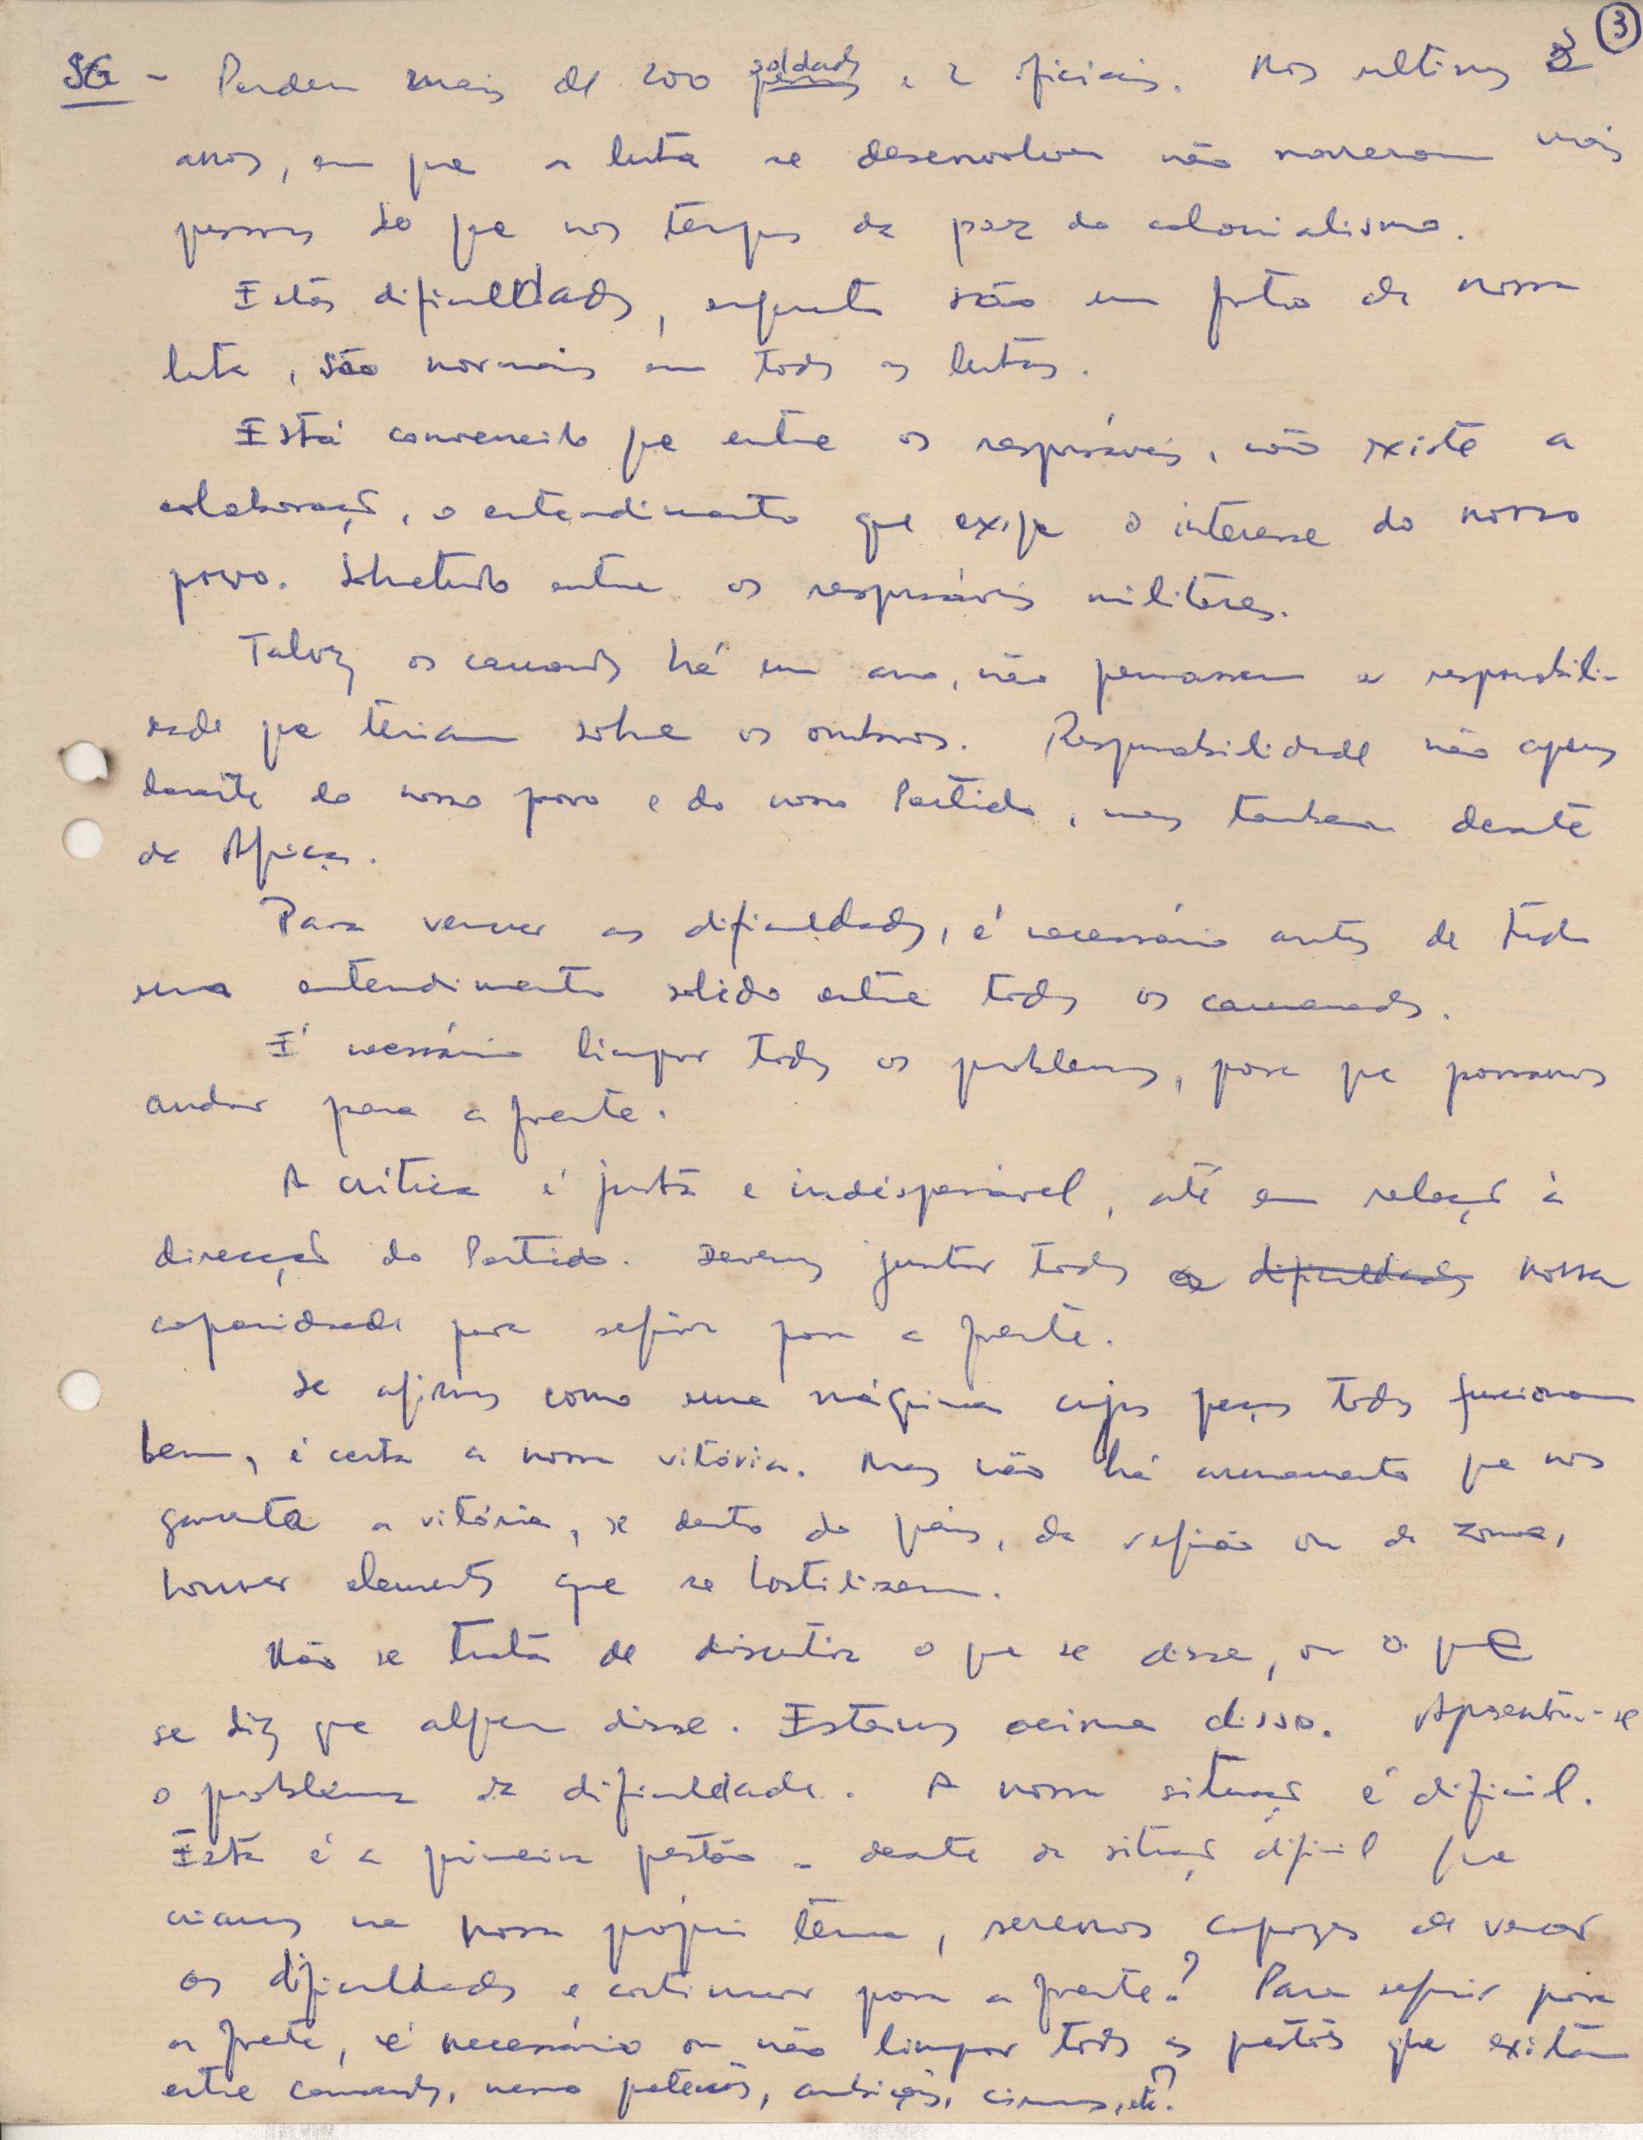 3
SG - Perderam mais de 200 soldados e 2 oficiais. Nos ultimos 3
anos, em que a luta se desenvolveu não morreram mais
pessoas do que nos tempos da paz do colonialismo.
Estas dificuldades, enquanto são um fruto da nossa
luta, são normais em todas as lutas.
Está convencido que entre os responsáveis, não existe a
colaboração, o entendimento que exige o interesse do nosso
povo. Sobretudo entre os responsáveis militares.
Talvez os camaradas há um ano, não pensassem a responsabili-
dade que teriam sobre os ombros. Responsabilidade não apenas
diante do nosso povo e do nosso Partido, mas tambem diante
da Africa.
Para vencer as dificuldades, é necessário antes de tudo
um entendimento solido entre todos os camaradas.
É necessário limpar todos os problemas, para que possamos
andar para a frente.
A critica é justa e indispensável, até em relação à
direcção do Partido. Devemos juntar toda a dificuldades nossa
capacidade para seguir para a frente.
Se agirmos como uma máquina cujas peças todas funcionam
bem, é certa a nossa vitória. Mas não há armamento que nos
garanta a vitória, se dentro do país, da região ou da zona,
houver elementos que se hostilizem.
Não se trata de discutir o que se disse, ou o que
se diz que alguem disse. Estamos acima disso. Apresentou-se
o problema da dificuldade. A nossa situação é dificil.
Esta é a primeira questão - diante da situação dificil que
criamos na nossa própria terra, seremos capazes de vencer
as dificuldades e continuar para a frente? Para seguir para
a frente, é necessário ou não limpar todas as questões que existam
entre camaradas, mesmo ambições, ciumes, etc?